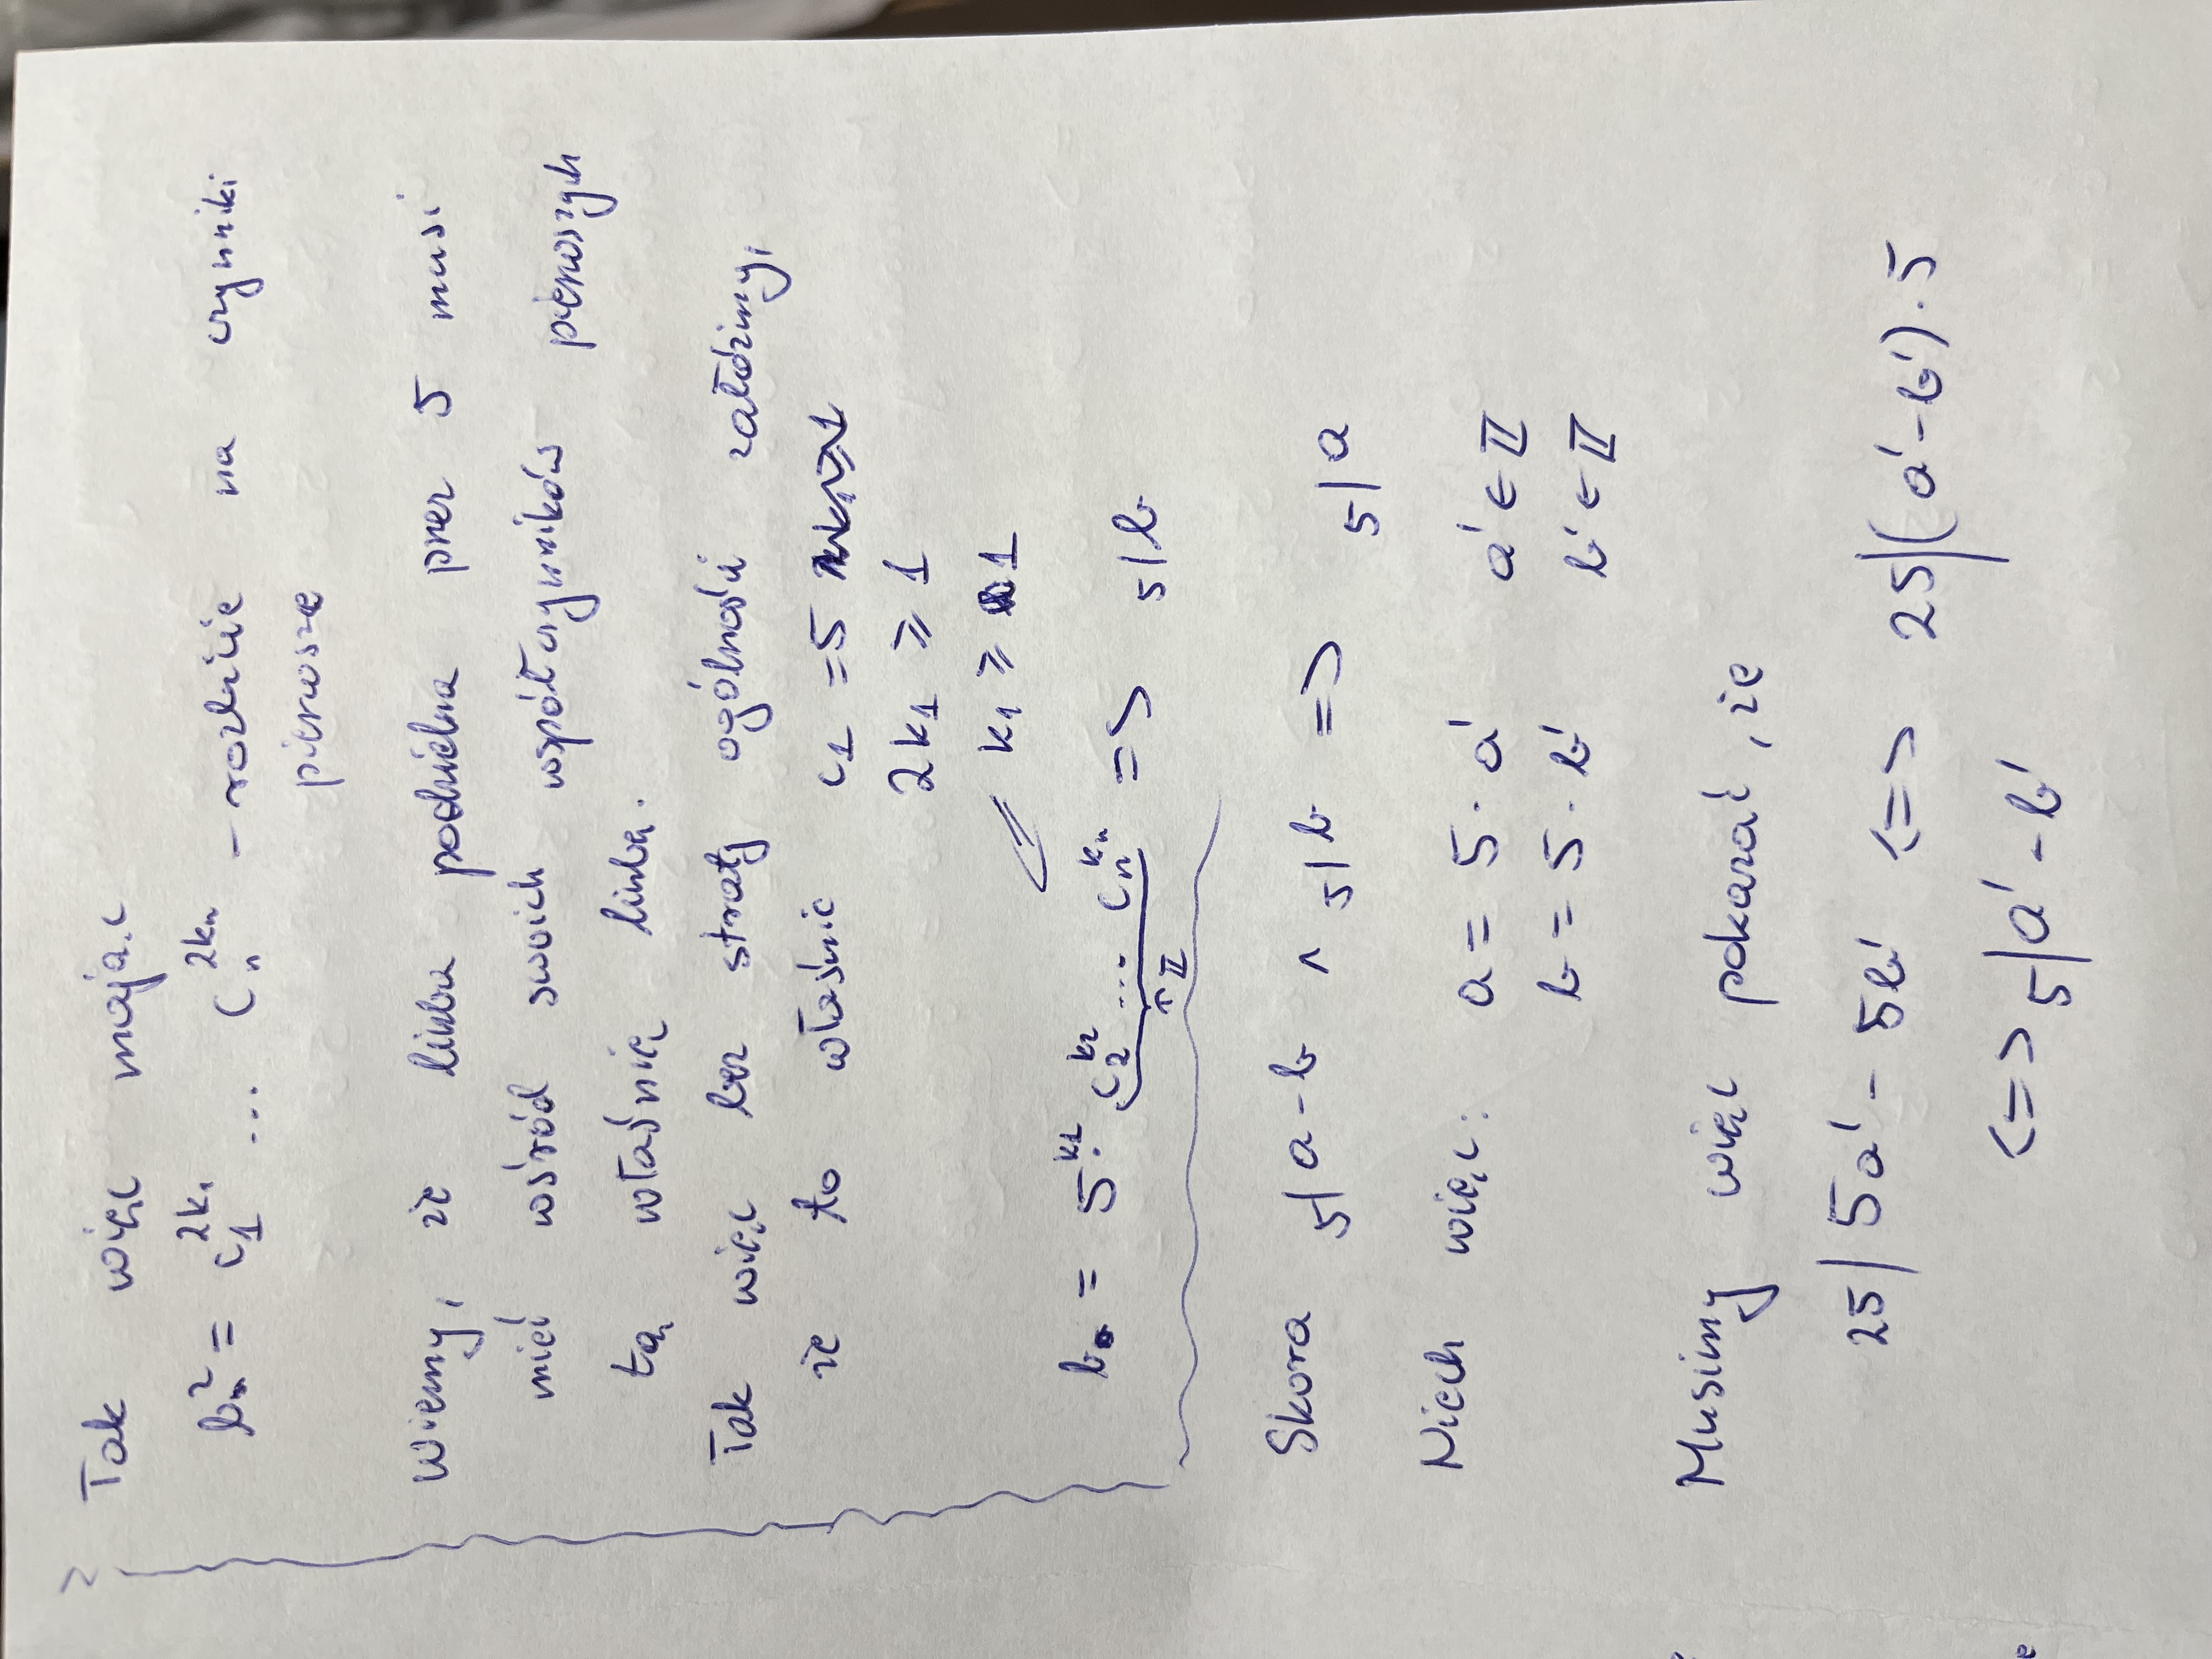 Tak więc mając
b² = c₁^2k₁ ... cₙ^2kₙ - rozbicie na czynniki
pierwsze
wiemy, że liczba podzielna przez 5 musi
mieć wśród swoich współczynników pierwszych
tą właśnie liczbę.
Tak więc bez straty ogólności załóżmy,
że to właśnie c₁ = 5
2k₁ ≥ 1
k₁ ≥ 1
b = 5^k₁ · c₂^k₂ ... cₙ^kₙ => 5|b
∈ ℤ
Skoro 5|a-b ∧ 5|b => 5|a
Niech więc: a = 5·a' a' ∈ ℤ
b = 5·b' b' ∈ ℤ
Musimy więc pokazać, że
25|5a' - 5b' <=> 25|(a'-b')·5
<=> 5|a'-b'